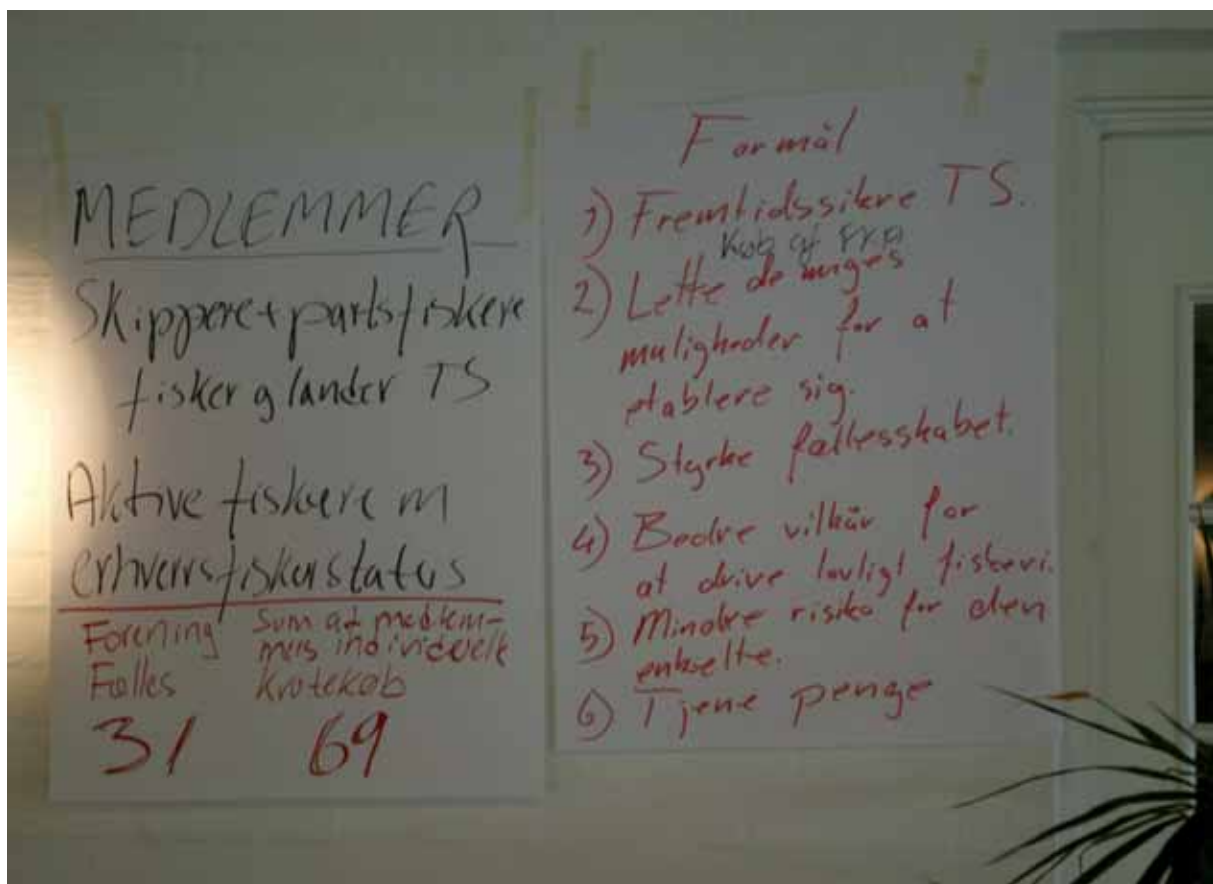 MEDLEMMER
Skippere+partsfiskere
fisker g lander TS
Aktive fiskere m
erhvervsfiskerstatus
Forening
Fælles
31
Sum af medlem-
mers individuelle
kvotekøb
69
Formål
1) Fremtidssikre TS.
Køb af FKA
2) Lette de unges
muligheder for at
etablere sig.
3) Styrke fællesskabet.
4) Bedre vilkår for
at drive lovligt fiskeri.
5) Mindre risiko for den
enkelte.
6) Tjene penge